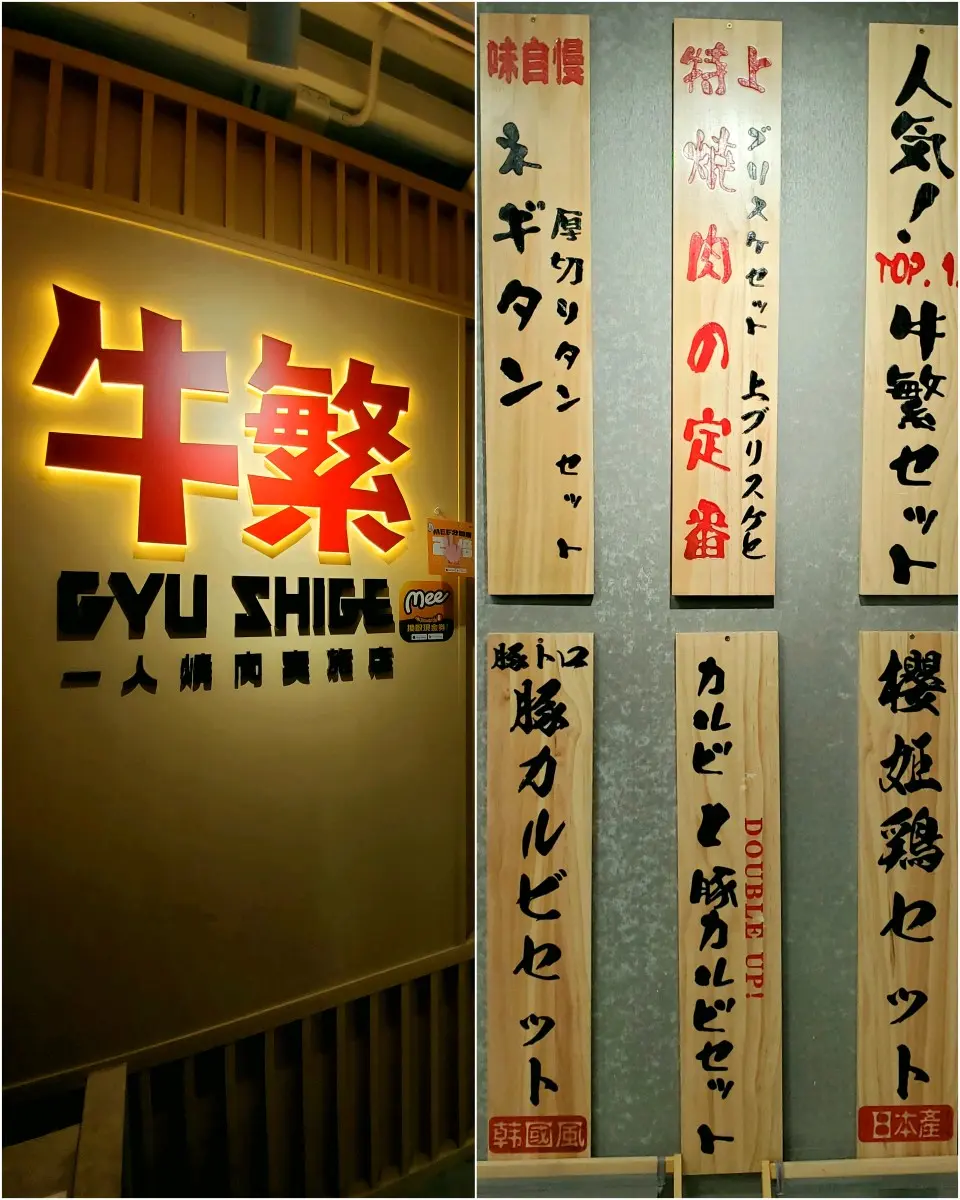 牛繁
GYU SHIGE
一人燒肉實施店
Mee
換取現金券!
味自慢
ネギタン
厚切りタンセット
特上
焼肉の定番
ブリスケセット 上ブリスケセ
人気!
TOP.1.
牛繁セット
豚トロ
豚カルビセット
韩國風
カルビと豚カルビセット
DOUBLE UP!
櫻姫鶏セット
日本產